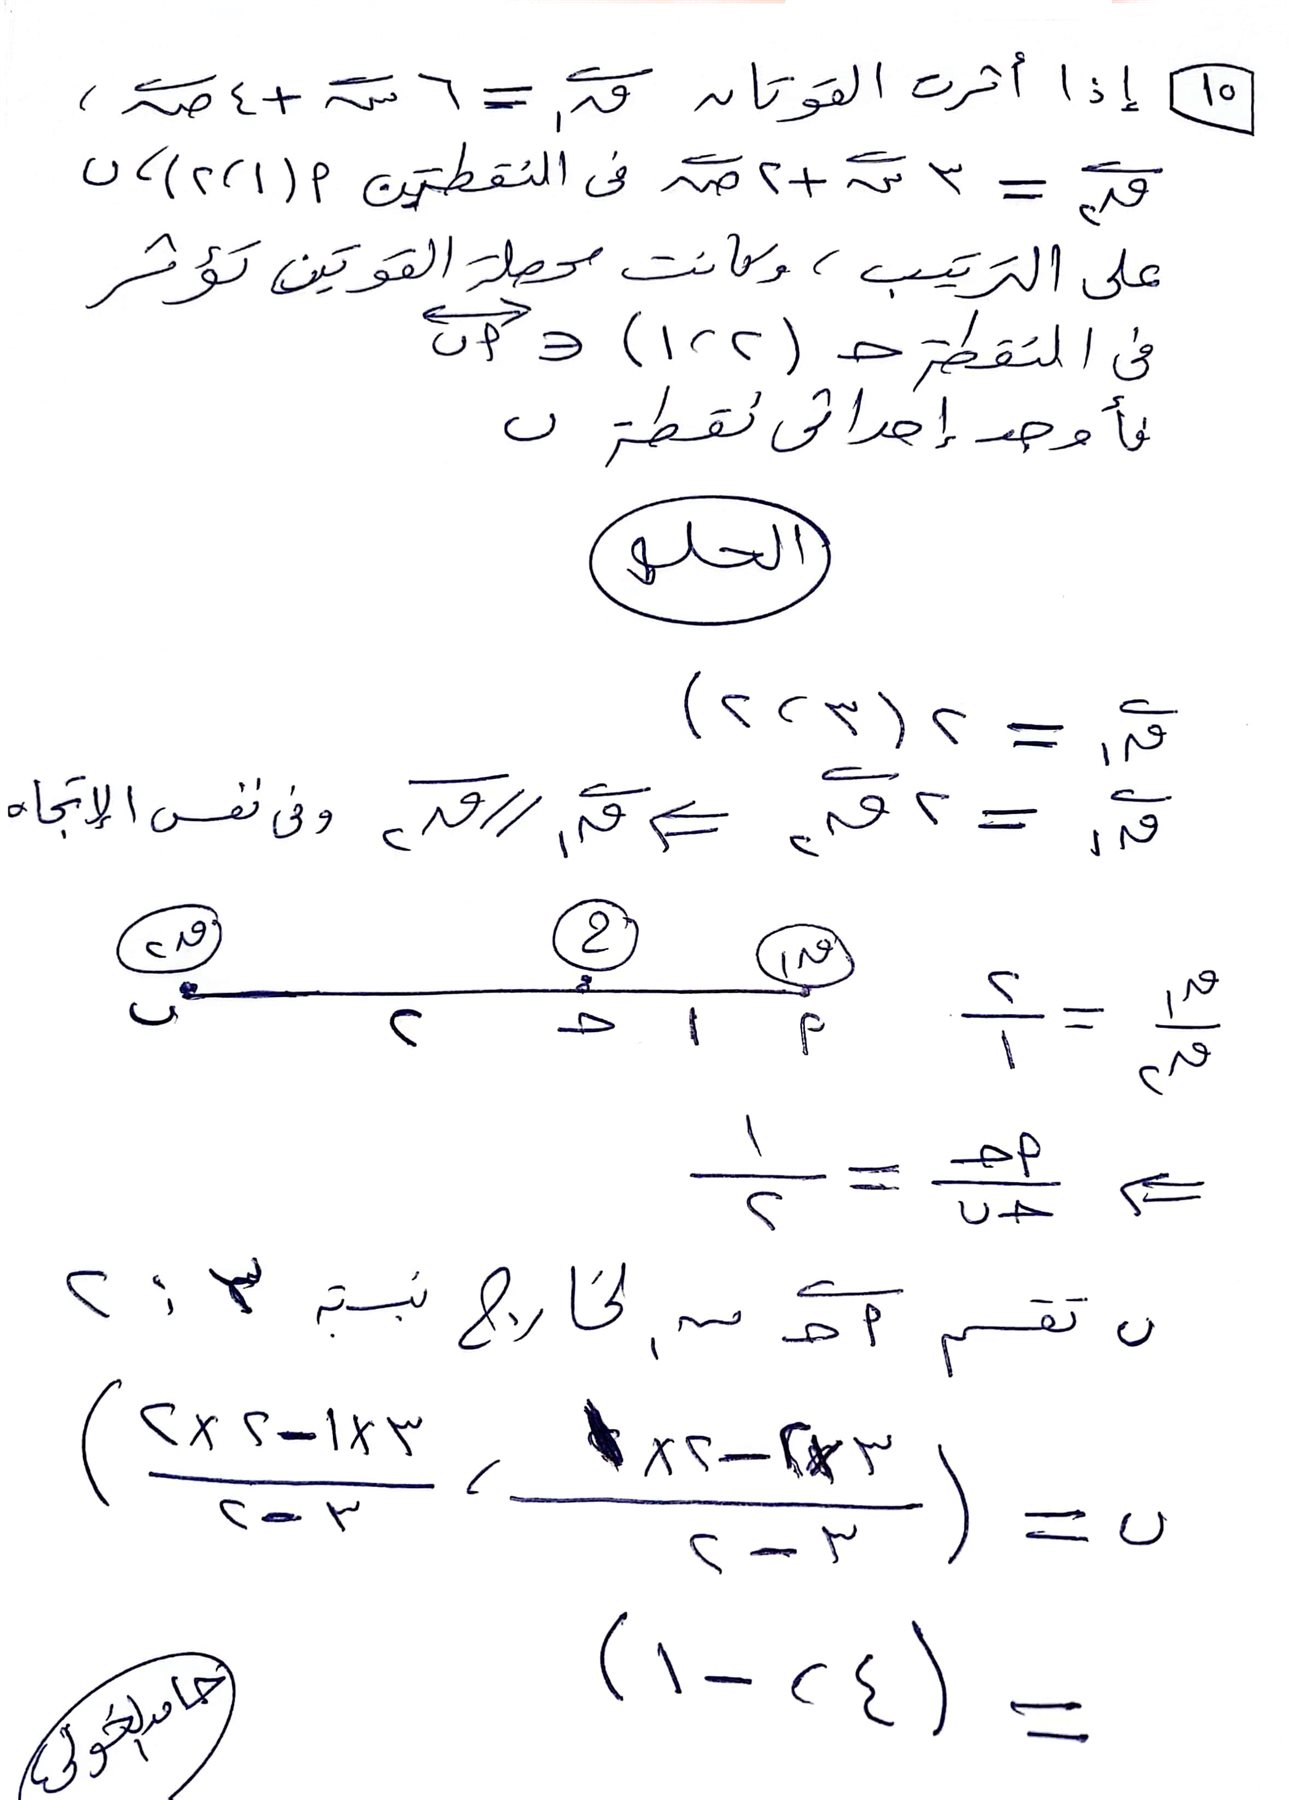 ١٠ إذا أثرت القوتان ق١ = ٦ س + ٤ ص ،
ق٢ = ٣ س + ٢ ص فى النقطتين م (١ ، ٢) ، ں
على الترتيب ، وكانت محصلة القوتين تؤثر
فى النقطة حـ (٢ ، ١) ∈ م ں
فأوجد إحداثى نقطة ں
الحل
ق١ = ٢ (٣ ، ٢)
ق١ = ٢ ق٢ ⇐ ق١ // ق٢ وفى نفس الإتجاه
ق١ ح ق٢
ق١ / ق٢ = ٢ / ١
م ١ حـ ٢ ں
⇐ م حـ / حـ ں = ١ / ٢
ں تقسم م حـ من الخارج بنسبة ٣ : ٢
ں = ( (٣×٢ − ٢×١) / (٣ − ٢) ، (٣×١ − ٢×٢) / (٣ − ٢) )
= (٤ ، −١)
حامد الخولى